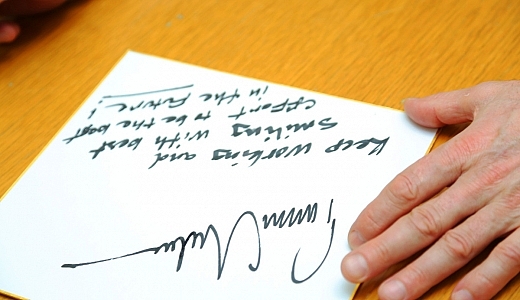 Keep working and
smiling with best
effort to be the best
in the Future!